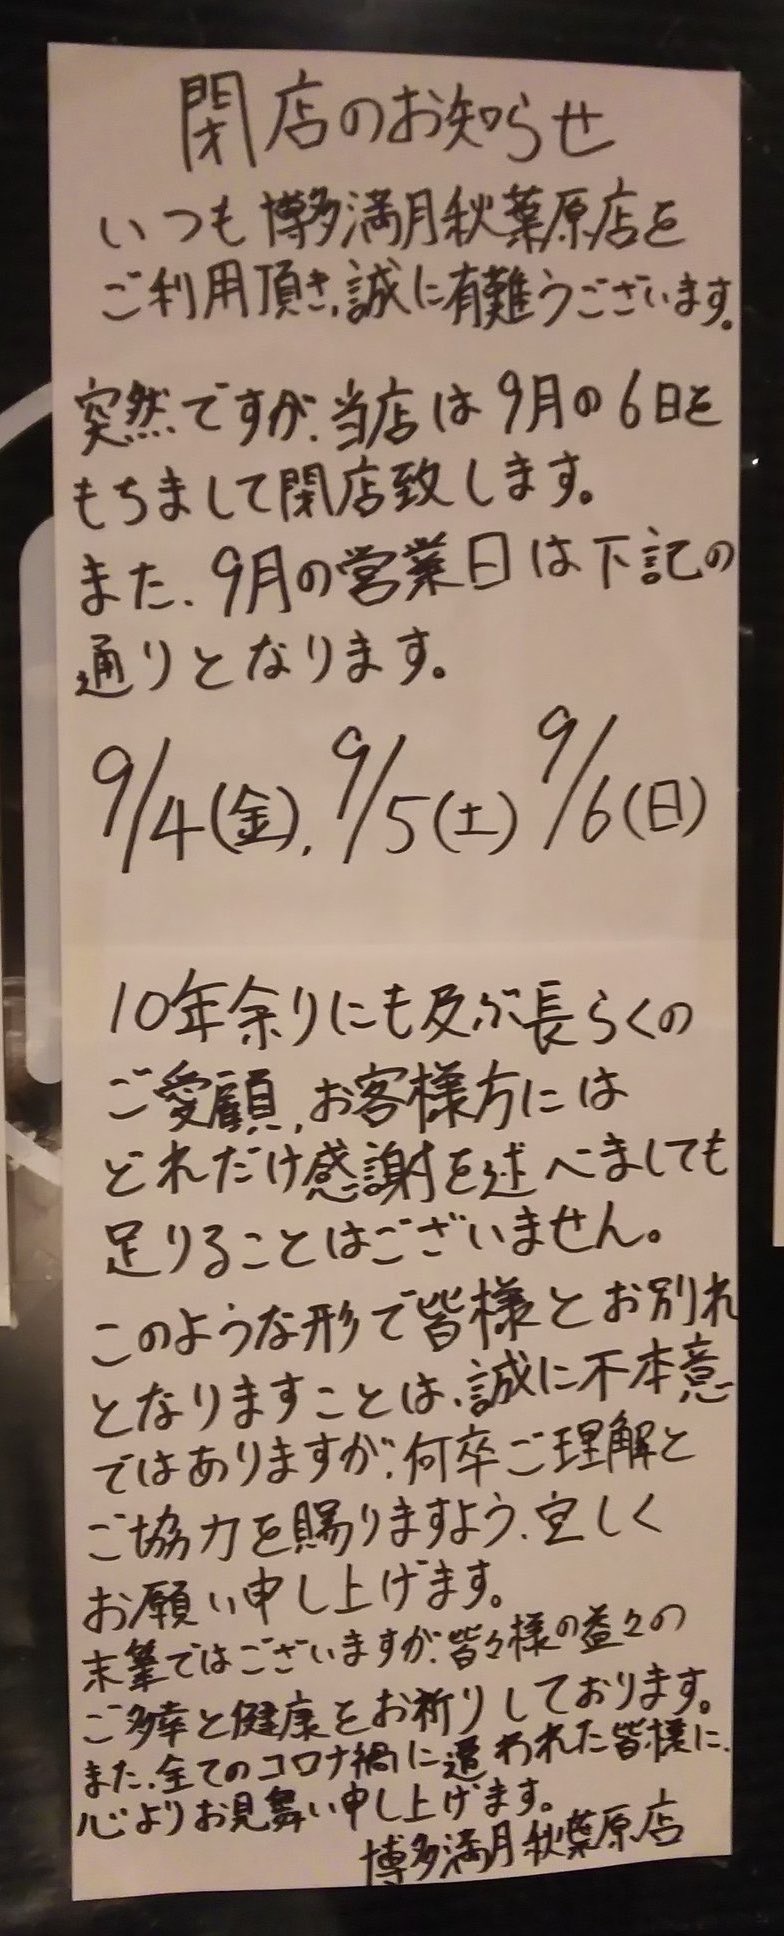 閉店のお知らせ
いつも博多満月秋葉原店を
ご利用頂き、誠に有難うございます。
突然ですが、当店は9月の6日を
もちまして閉店致します。
また、9月の営業日は下記の
通りとなります。
9/4(金)、9/5(土) 9/6(日)
10年余りにも及ぶ長らくの
ご愛顧、お客様方には
どれだけ感謝を述べましても
足りることはございません。
このような形で皆様とお別れ
となりますことは、誠に不本意
ではありますが、何卒ご理解と
ご協力を賜りますよう、宜しく
お願い申し上げます。
末筆ではございますが、皆々様の益々の
ご多幸と健康をお祈りしております。
また、全てのコロナ禍に遭われた皆様に、
心よりお見舞い申し上げます。
博多満月秋葉原店